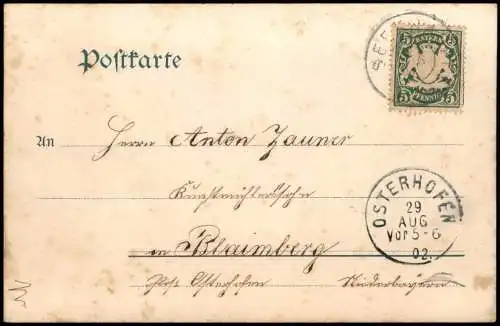 Postkarte
BAYERN
5 5
PFENNIG
An Herrn Anton Zauner
in Blaimberg
Post Osterhofen Niederbayern
OSTERHOFEN
29
AUG
Vor 5-6
02.